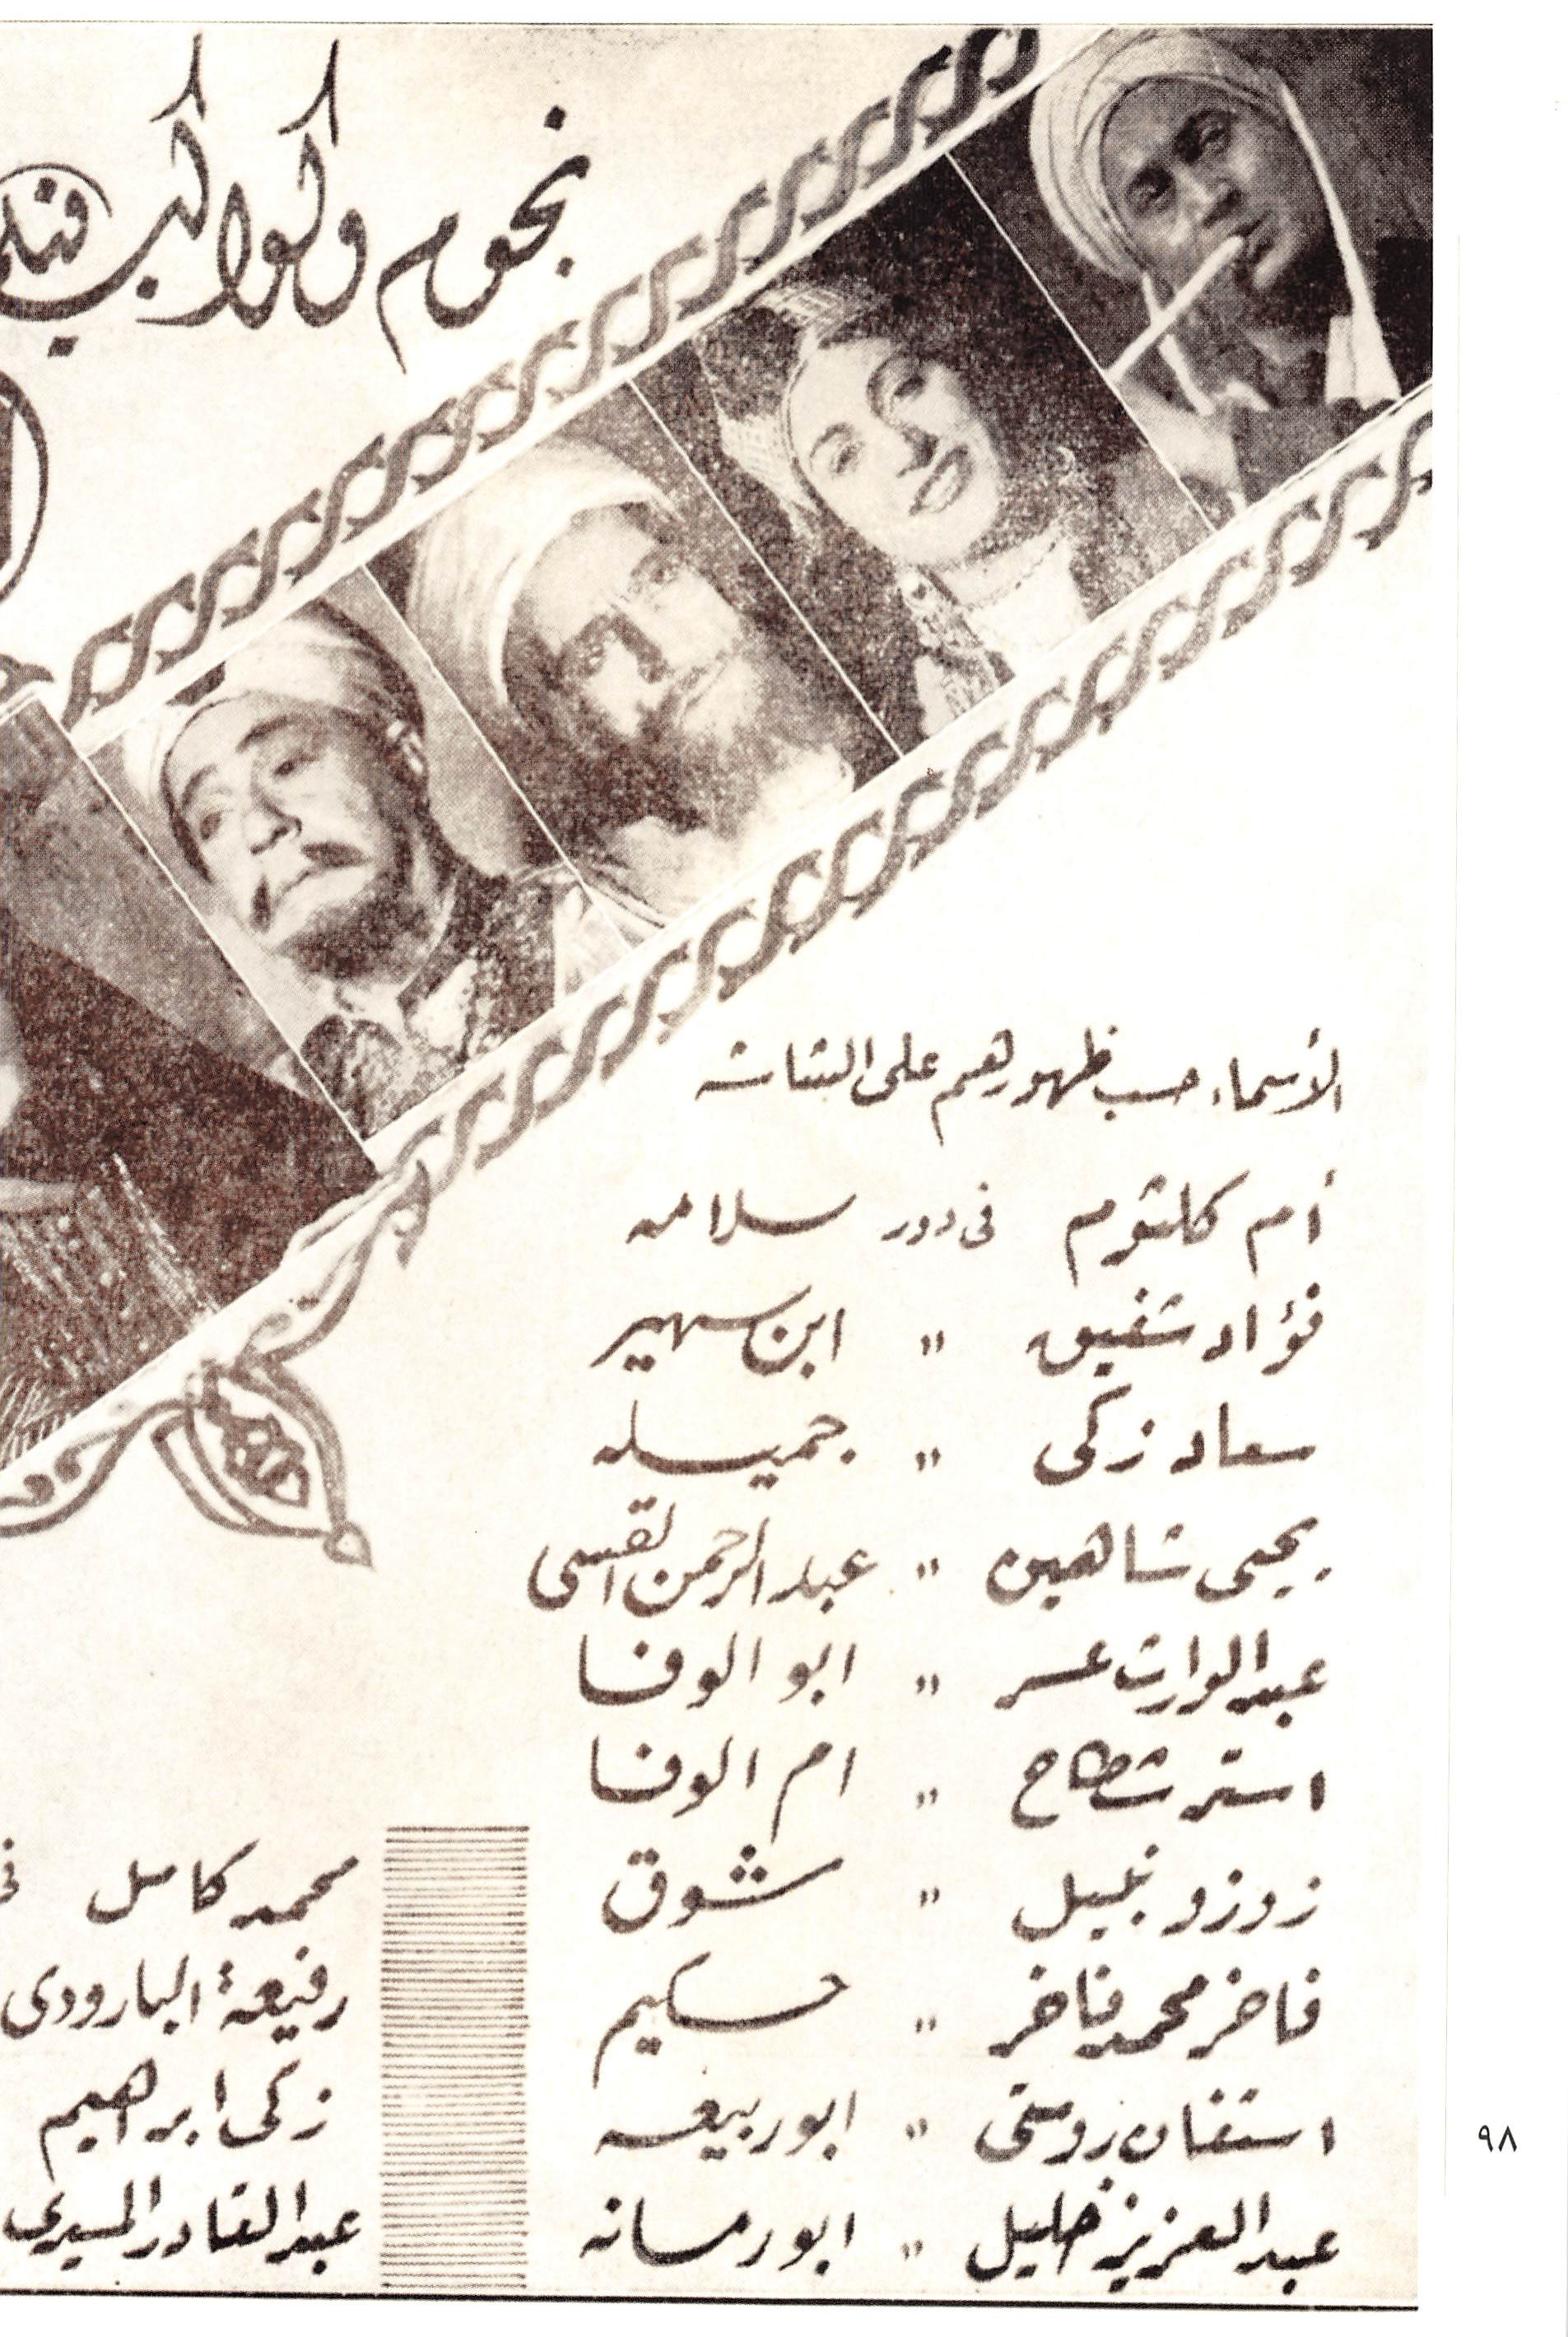 نجوم وكواكب فيلم
الأسماء حسب ظهورهم على الشاشة
أم كلثوم فى دور سلامه
فؤاد شفيق " ابن سهير
سعاد زكى " جميله
يحيى شاهين " عبد الرحمن القسى
عبد الوارث عسر " ابو الوفا
استر شطاح " ام الوفا
زوزو نبيل " شوق
فاخر محمد فاخر " حكيم
استفان روستى " ابو ربيعه
عبد العزيز خليل " ابو رمانه
محمد كامل
رفيعة البارودى
زكى ابراهيم
عبد القادر المسيرى
٩٨